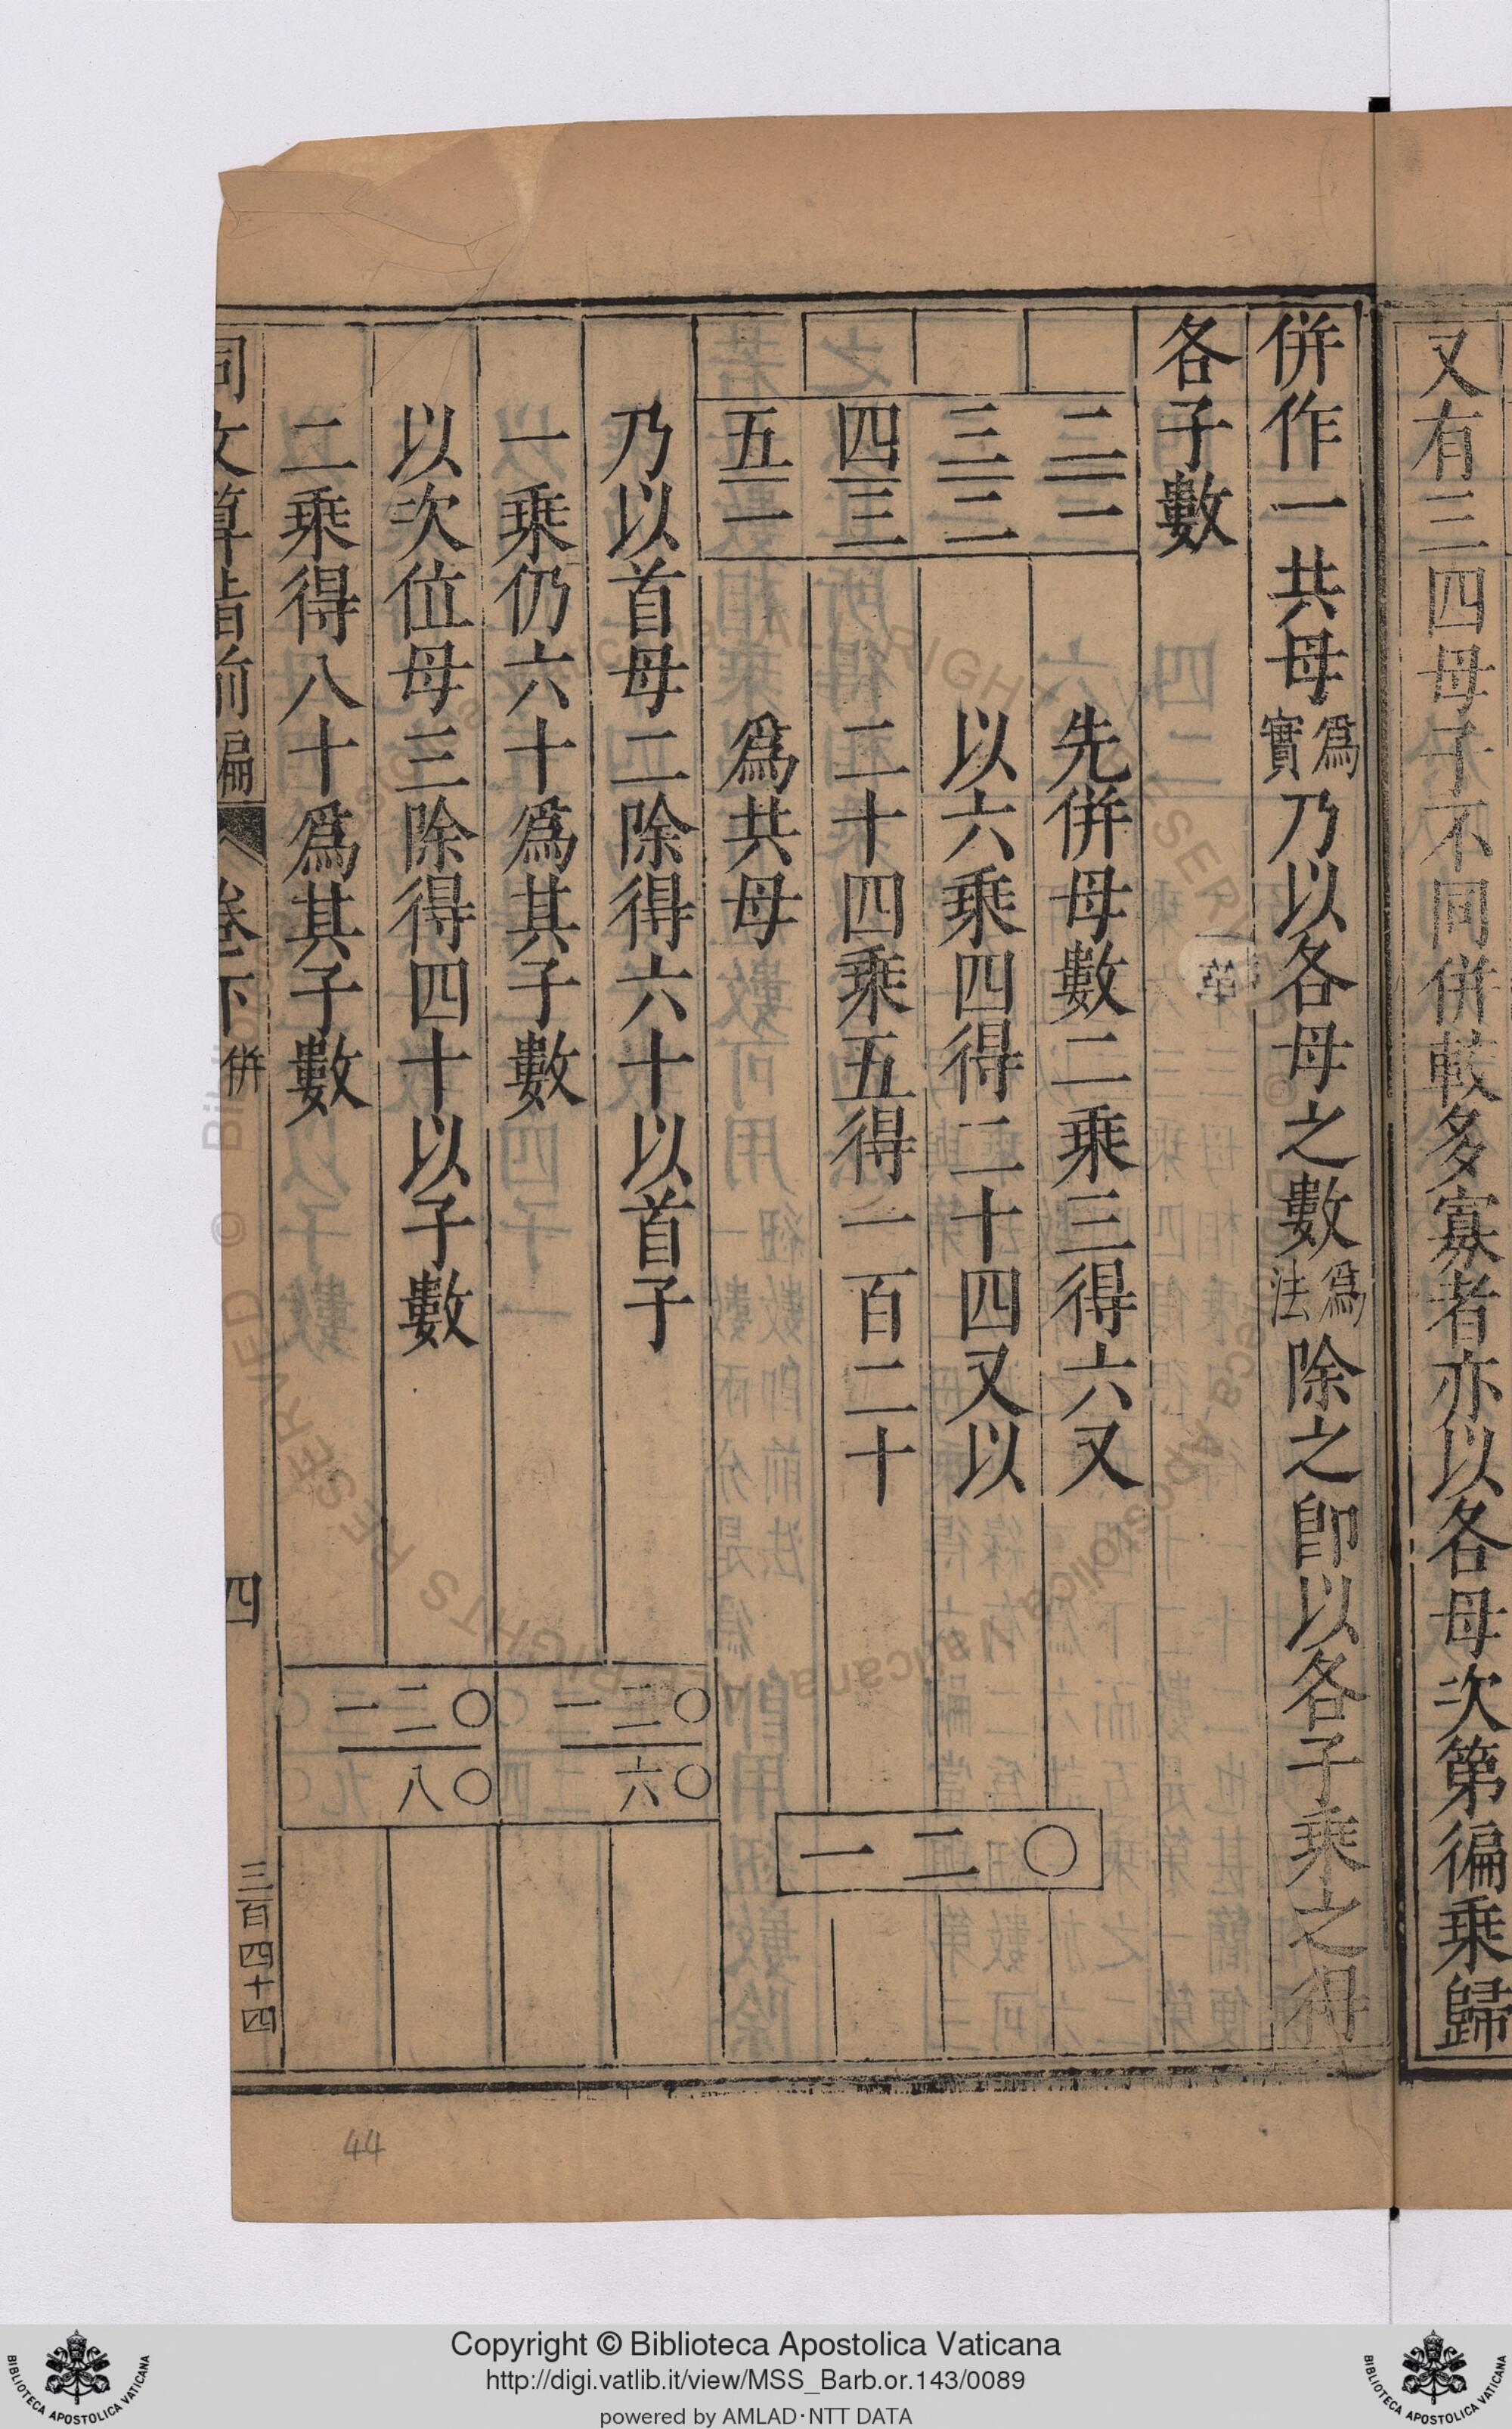 又有三四母子不同併較多寡者亦以各母次第徧乘歸
併作一共母爲實乃以各母之數爲法除之卽以各子乘之得
各子數
二一 先併母數二乘三得六又
三二 以六乘四得二十四又以
四三 二十四乘五得一百二十
五二 爲共母
一二〇
乃以首母二除得六十以首子
一乘仍六十爲其子數
一二〇
六〇
以次位母三除得四十以子數
二乘得八十爲其子數
一二〇
八〇
同文算指前編 卷下 併 四 三百四十四
44
Copyright © Biblioteca Apostolica Vaticana
http://digi.vatlib.it/view/MSS_Barb.or.143/0089
powered by AMLAD·NTT DATA
BIBLIOTECA APOSTOLICA VATICANA
BIBLIOTECA APOSTOLICA VATICANA